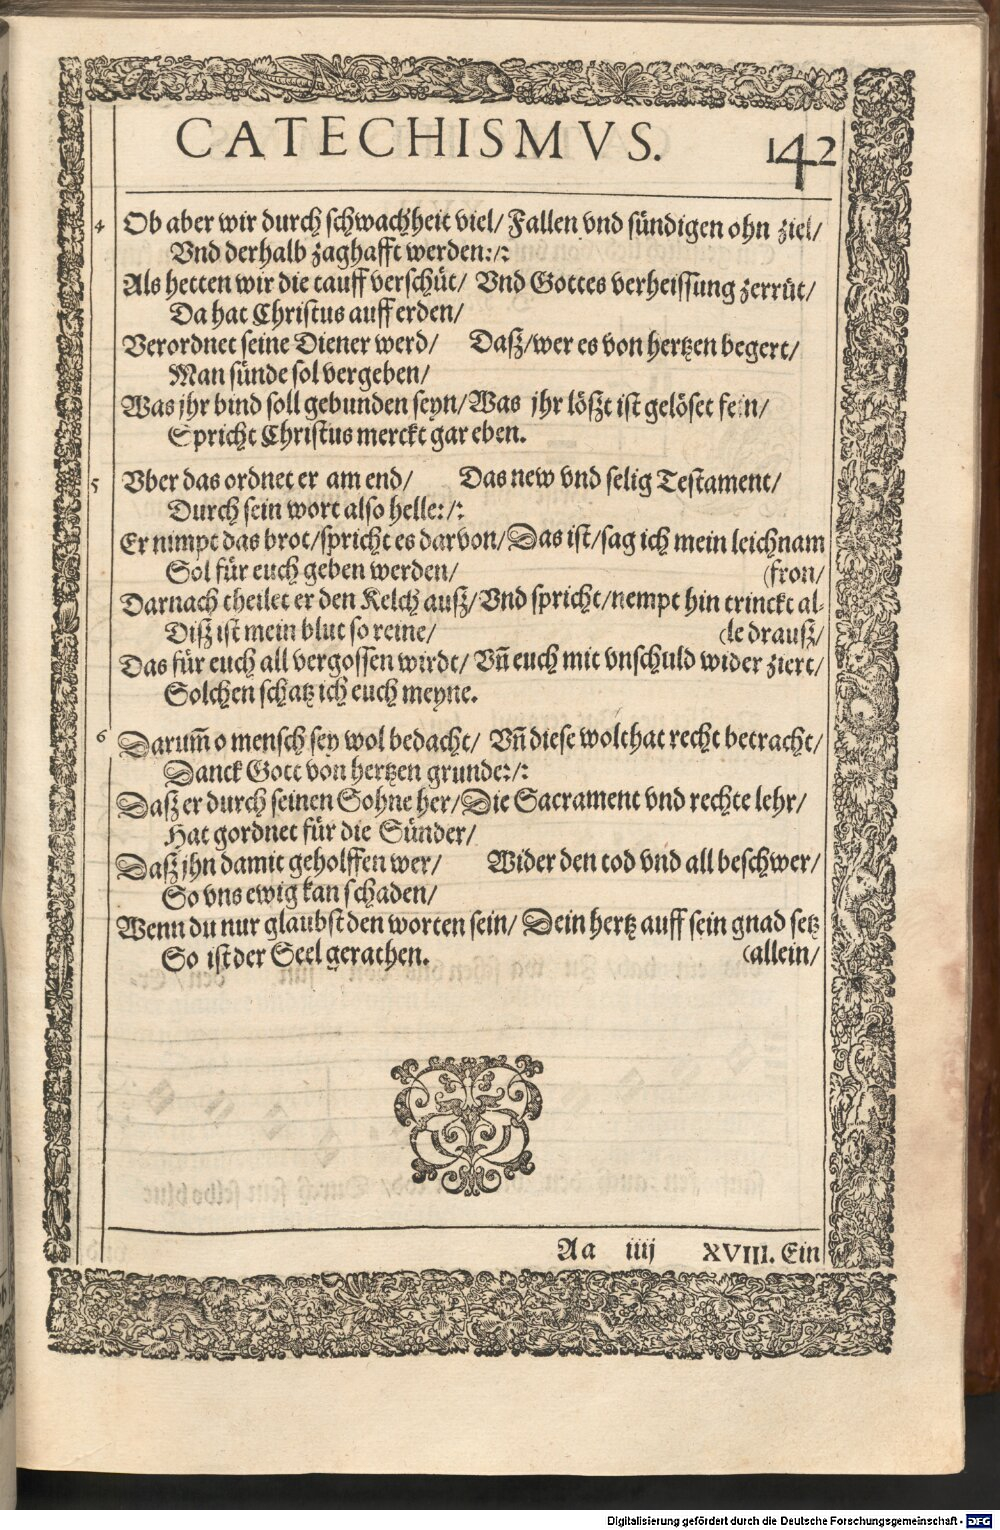 CATECHISMVS. 142
4 Ob aber wir durch schwachheit viel/ Fallen vnd sündigen ohn ziel/
Vnd derhalb zaghafft werden:/:
Als hetten wir die tauff verschüt/ Vnd Gottes verheissung zerrüt/
Da hat Christus auff erden/
Verordnet seine Diener werd/ Daß/wer es von hertzen begert/
Man sünde sol vergeben/
Was jhr bind soll gebunden seyn/Was jhr lößt ist gelöset sein/
Spricht Christus merckt gar eben.
5 Vber das ordnet er am end/ Das new vnd selig Testament/
Durch sein wort also helle:/:
Er nimpt das brot/spricht es darvon/Das ist/sag ich mein leichnam
Sol für euch geben werden/ (fron/
Darnach theilet er den Kelch auß/Vnd spricht/nempt hin trinckt al-
Diß ist mein blut so reine/ (le drauß/
Das für euch all vergossen wirdt/ Vn̄ euch mit vnschuld wider ziert/
Solchen schatz ich euch meyne.
6 Darum̄ o mensch sey wol bedacht/ Vn̄ diese wolthat recht betracht/
Danck Gott von hertzen grunde:/:
Daß er durch seinen Sohne her/Die Sacrament vnd rechte lehr/
Hat gordnet für die Sünder/
Daß jhn damit geholffen wer/ Wider den tod vnd all beschwer/
So vns ewig kan schaden/
Wenn du nur glaubst den worten sein/ Dein hertz auff sein gnad setz
So ist der Seel gerathen. (allein/
Aa iiij XVIII. Ein
Digitalisierung gefördert durch die Deutsche Forschungsgemeinschaft - DFG